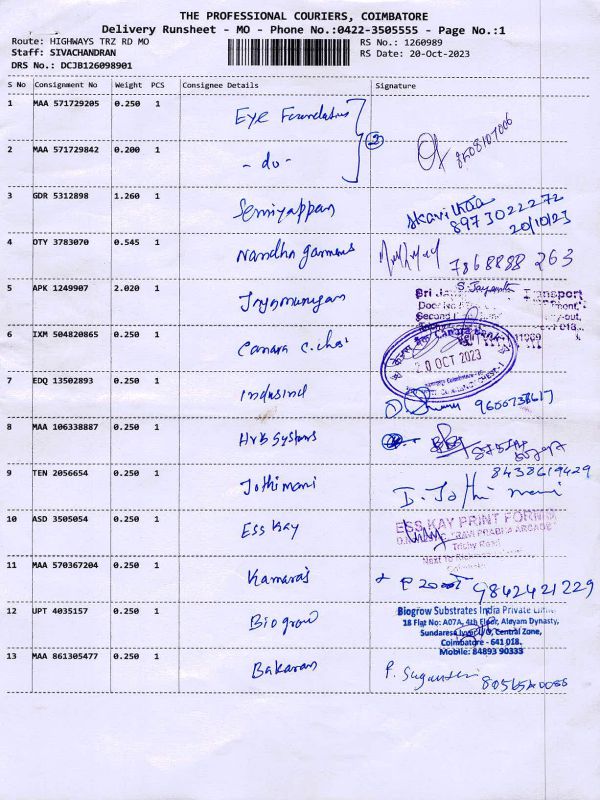 THE PROFESSIONAL COURIERS, COIMBATORE
Delivery Runsheet - MO - Phone No.:0422-3505555 - Page No.:1
Route: HIGHWAYS TRZ RD MO
RS No.: 1260989
Staff: SIVACHANDRAN
RS Date: 20-Oct-2023
DRS No.: DCJB126098901
S No Consignment No Weight PCS Consignee Details Signature
1 MAA 571729205 0.250 1 Eye Foundations
2 MAA 571729842 0.200 1 - do - 2
3 GDR 5312898 1.260 1 Semiyappan
8973022272
20/10/23
4 DTY 3783070 0.545 1 Nandha garments 7868888263
5 APK 1249907 2.020 1 S. Jayanthi
Sri Transport
6 IXM 504820865 0.250 1 Canara C. chest Canara Bank
20 OCT 2023
7 EDQ 13502893 0.250 1 Indusind
8 MAA 106338887 0.250 1 Systems
9 TEN 2056654 0.250 1 Jothimani 8438619429
D. Jothi mani
10 ASD 3505054 0.250 1 Ess Kay ESS KAY PRINT FORMS
"RAVI PRABHA ARCADE"
Trichy Road
Next To
11 MAA 570367204 0.250 1 Kamaras 9842421229
12 UPT 4035157 0.250 1 Biogrow Biogrow Substrates India Private Limited
18 Flat No: A07A, 4th Floor, Aleyam Dynasty,
Sundaresa Central Zone,
Coimbatore - 641 018.
Mobile: 84893 90333
13 MAA 861305477 0.250 1 Bakaran P.